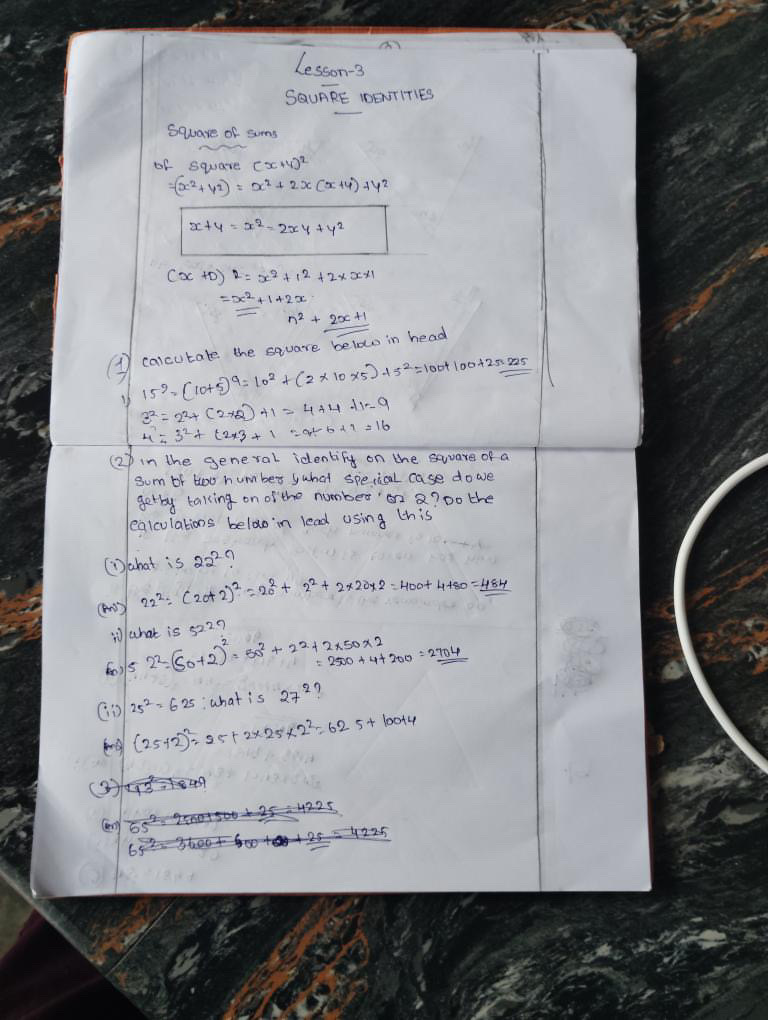 Lesson-3
SQUARE IDENTITIES
Square of sums
of square (x+y)²
=(x²+y²) = x² + 2x (x+y) + y²
x+y = x² = 2xy + y²
(x+1) 2 = x² + 1² + 2×x×1
= x² + 1 + 2x
n² + 2x+1
(1) calculate the square below in head
i) 15² = (10+5)² = 10² + (2×10×5) + 5² = 100+100+25=225
3² = 2² + (2×2) + 1 = 4+4+1=9
4² = 3² + (2×3 + 1 = 9+6+1 = 16
(2) in the general identify on the square of a
sum of two number, what special case do we
get by taking on of the number or 2? Do the
calculations below in lead using this
(i) what is 22²?
(Ans) 22² = (20+2)² = 20² + 2² + 2×20×2 = 400+4+80=484
ii) what is 52²?
52²=(50+2)² = 50² + 2²+2×50×2
= 2500 + 4+200 = 2704
(iii) 25² = 625; what is 27²?
(Ans) (25+2)² = 25 + 2×25×2² = 625 + 100+4
(3) 43² = 1849
(Ans) 65² = 2500+500 + 25 = 4225
65² = 3600 + 600 + 25 = 4225